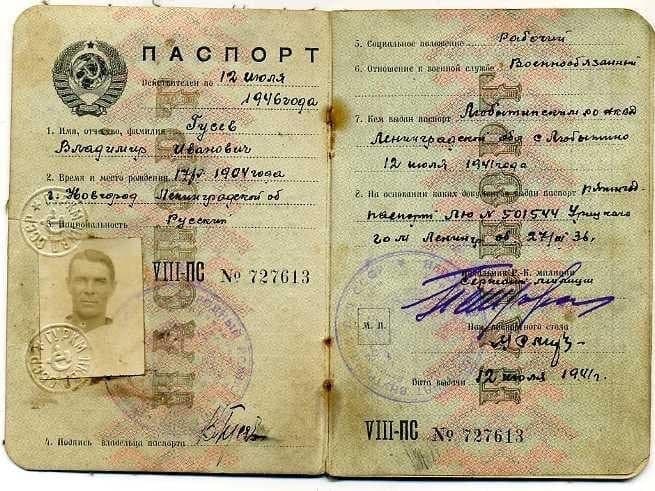 ПАСПОРТ
Действителен по 12 июля
1946 года
1. Имя, отчество, фамилия Гусев
Владимир Иванович
2. Время и место рождения 1904 года
г. Новгород Ленинградской об
3. Национальность Русский
VIII-ПС № 727613
4. Подпись владельца паспорта
5. Социальное положение Рабочий
6. Отношение к военной службе Военнообязанный
7. Кем выдан паспорт Любытинским ро НКВД
Ленинградской обл с Любытино
12 июля 1941 года
8. На основании каких документов выдан паспорт
паспорт № 501544 Урицкого
го м Ленингр об 27/ 36.
Начальник Р.-К. милиции
Сержант милиции
М. П.
Нач. паспортного стола
Дата выдачи 12 июля 1941 г.
VIII-ПС № 727613